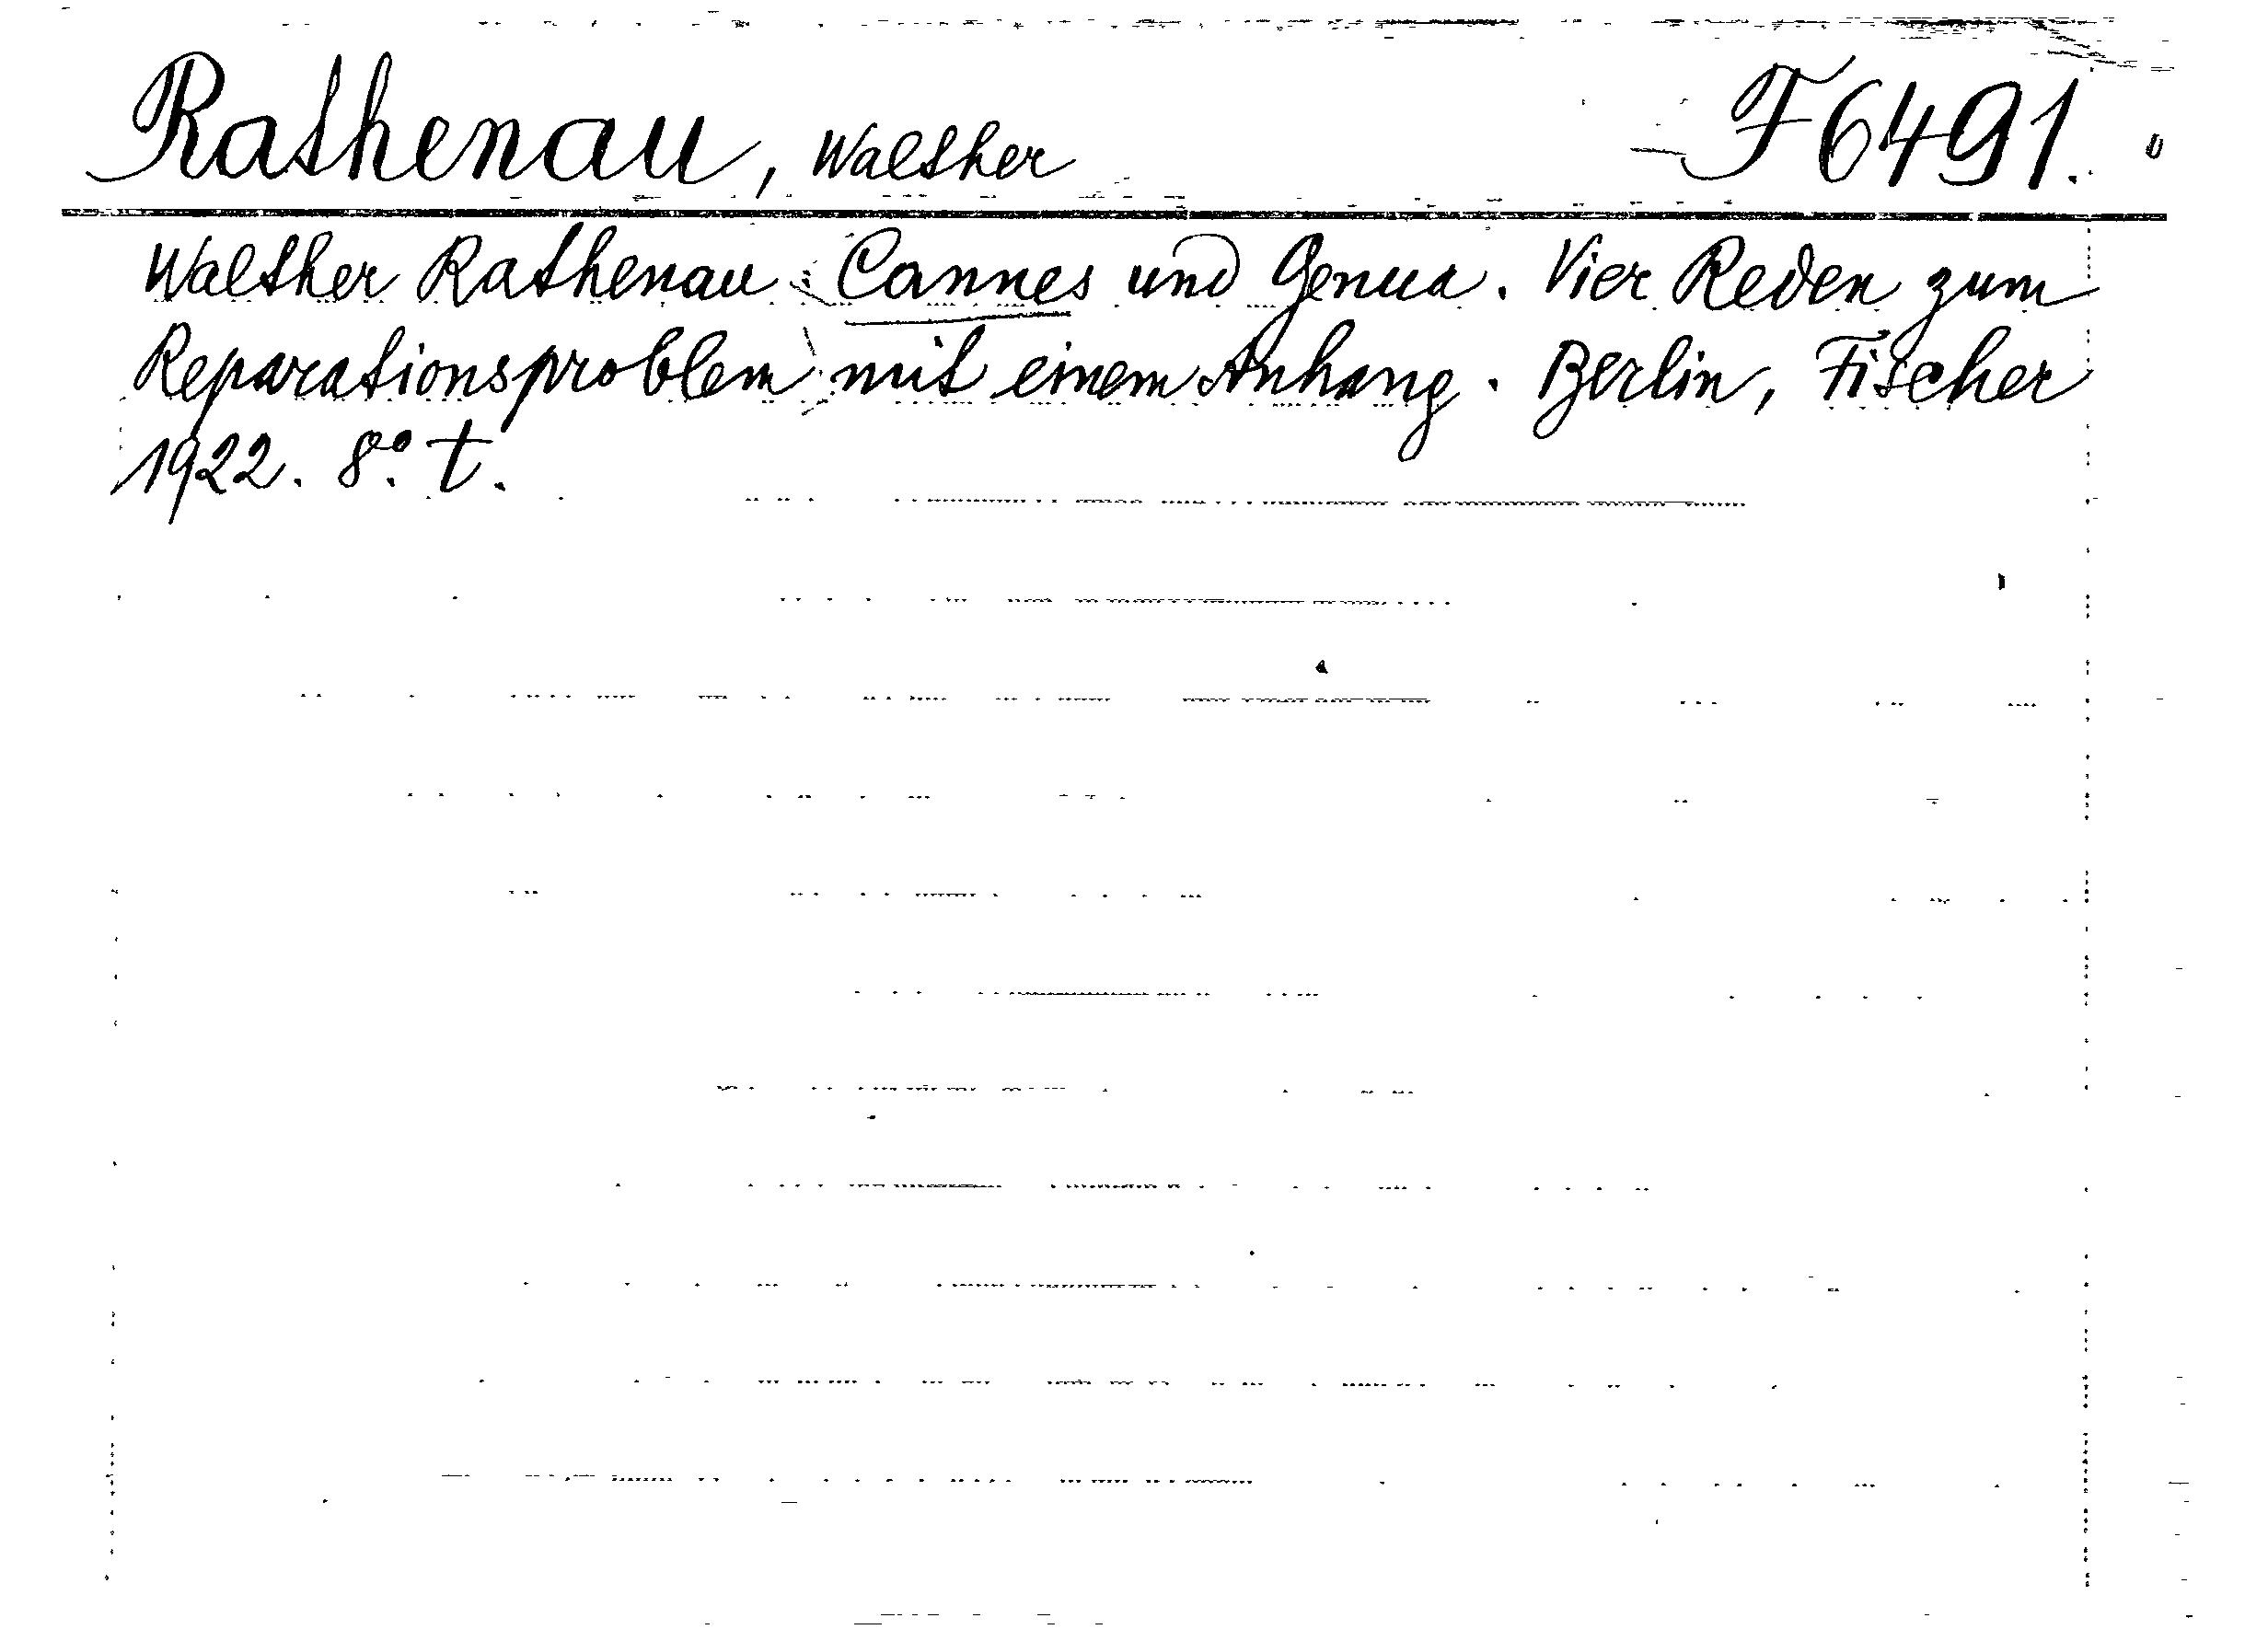 Rathenau, Walther F6491.
Walther Rathenau: Cannes und Genua. Vier Reden zum
Reparationsproblem mit einem Anhang. Berlin, Fischer
1922. 8°. t.